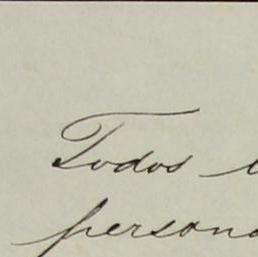 Todos
person